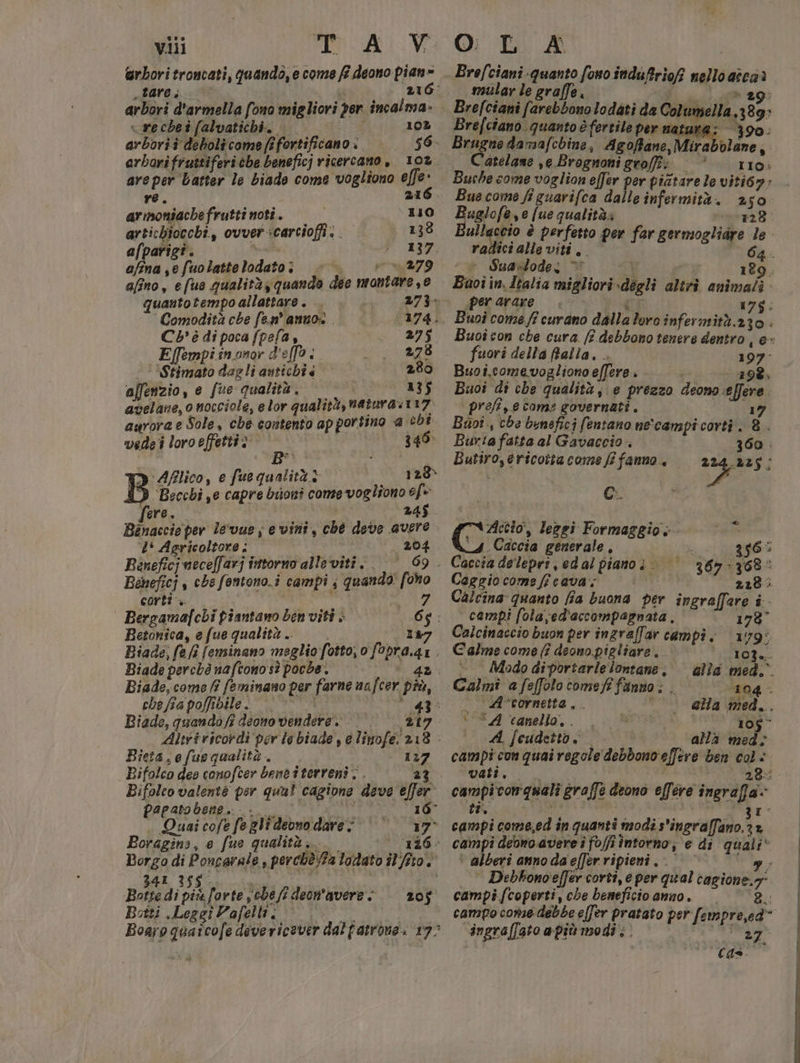 viii T A V O L A
arbori troncati, quando, e come ſi deono pian-
tare. 216
arbori d'armella ſono migliori per incalma-
re che i ſalvatichi. 102
arbori i deboli come ſi fortificano. 56
arbori fruttiferi che beneficj ricercano, 102
are per batter le biade come vogliono eſſe-
re. 216
armoniache frutti noti. 110
artichiocchi, ovver ſcarcioffi. 138
aſparigi. 137
aſina, e ſuo latte lodato. 279
aſino, e ſue qualità, quando dee montare, e
quanto tempo allattare. 273
Comodità che ſe n'anno. 274
Ch'è di poca ſpeſa, 275
Eſſempi in onor d'eſſo. 278
Stimato dagli antichi. 280
aſſenzio, e ſue qualità. 135
avelane, o nocciole, e lor qualità, natura. 117
aurora e Sole, che contento apportino a chi
vede i loro effetti. 346
B
Aſilico, e ſue qualità. 128
Becchi, e capre buoni come vogliono eſ-
ſere. 245
Benaccio per le vue, e vini, che deve avere
l' Agricoltore. 204
Beneficj neceſſarj intorno alle viti. 69
Beneficj, che ſentono i campi, quando ſono
corti. 7
Bergamaſchi piantano ben viti. 65
Betonica, e ſue qualità. 127
Biade, ſe ſi ſeminano meglio ſotto, o ſopra. 41
Biade perchè naſcono sì poche. 42
Biade, come ſi ſeminano per farne naſcer più,
che ſia poſſibile. 43
Biade, quando ſi deono vendere. 217
Altri ricordi per le biade, e linoſe. 218
Bieta, e ſue qualità. 127
Bifolco dee conoſcer bene i terreni. 23
Bifolco valente per qual cagione deve eſſer
pagato bene. 16
Quai coſe ſe gli deono dare. 17
Boragine, e ſue qualità. 126
Borgo di Poncarale, perchè ſia lodato il ſito.
341 355
Botte di più ſorte, che ſi deon' avere. 205
Botti. Leggi Vaſelli.
Boaro quai coſe deve ricever dal patrone. 17
Breſciani quanto ſono induſtrioſi nello accu-
mular le graſſe. 29
Breſciani ſarebbono lodati da Columella. 389
Breſciano quanto è fertile per natura. 390
Brugne damaſchine, Agoſtane, Mirabolane,
Catelane, e Brognoni groſſi. 110
Buche come voglion eſſer per piãtare le viti 67
Bue come ſi guariſca dalle infermità. 250
Bugloſe, e ſue qualità. 128
Bullaccio è perfetto per far germogliare le
radici alle viti. 64
Sua lode. 189
Buoi in Italia migliori degli altri animali
per arare 175
Buoi come ſi curano dalla loro infermità. 230
Buoi con che cura ſi debbono tenere dentro, e
fuori della ſtalla. 197
Buoi, come vogliono eſſere. 198
Buoi di che qualità, e prezzo deono eſſere
preſi, e come governati. 17
Buoi, che beneficj ſentano ne' campi corti. 8
Burla fatta al Gavaccio. 360
Butiro, e ricotta come ſi fanno. 224. 225
C
Accio, leggi Formaggio.
Caccia generale. 356
Caccia de' lepri, ed al piano. 367 368
Caggio come ſi cava. 228
Calcina quanto ſia buona per ingraſſare i
campi ſola, ed accompagnata. 178
Calcinaccio buon per ingraſſar campi. 179
Calme come ſi deono pigliare. 103
Modo di portarle lontane. alla med.
Calmi a feſſolo come ſi fanno. 104
A cornetta. alla med.
A canello. 105
A ſcudetto. alla med.
campi con quai regole debbono eſſere ben col-
vati. 28
campi con quali graſſe deono eſſere ingraſſa-
ti. 31
campi come, ed in quanti modi s'ingraſſano. 32
campi deono avere i foſſi intorno, e di quali
alberi anno da eſſer ripieni. 9
Debbono eſſer corti, e per qual cagione. 7
campi ſcoperti, che beneficio anno. 8
campo come debbe eſſer pratato per ſempre, ed
ingraſſato a più modi. 27
Ca-